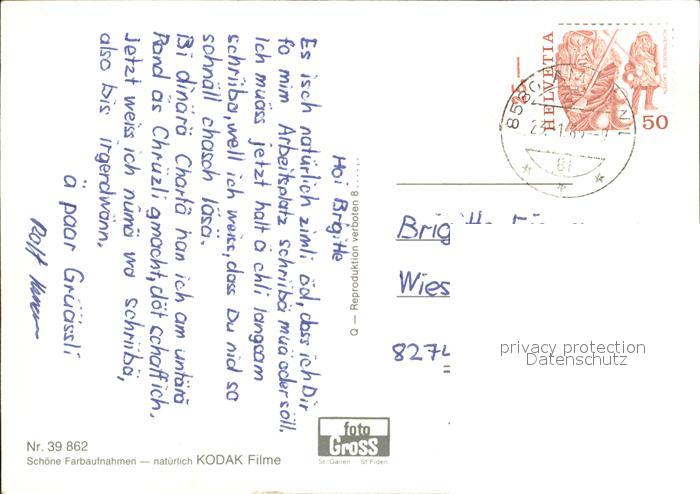 Hoi Brigitte
Es isch natürlich zimli öd, dass ich Dir
fo mim Arbeitsplatz schriibä muä oder söll.
Ich muäss jetzt halt ä chli langsam
schriiba, well ich weiss, dass Du nid so
schnäll chasch läsa.
Bi dinärä Chartä han ich am untärä
Rand äs Chrüzli gmacht, döt schaff ich.
Jetzt weiss ich nümä wa schriibä,
also bis irgendwänn.
ä paar Grüässli
Rolf
Q — Reproduktion verboten 8
HELVETIA
50
8580
Brigitte
Wies
8274
privacy protection
Datenschutz
foto
Gross
St. Gallen St. Fiden
Nr. 39 862
Schöne Farbaufnahmen — natürlich KODAK Filme